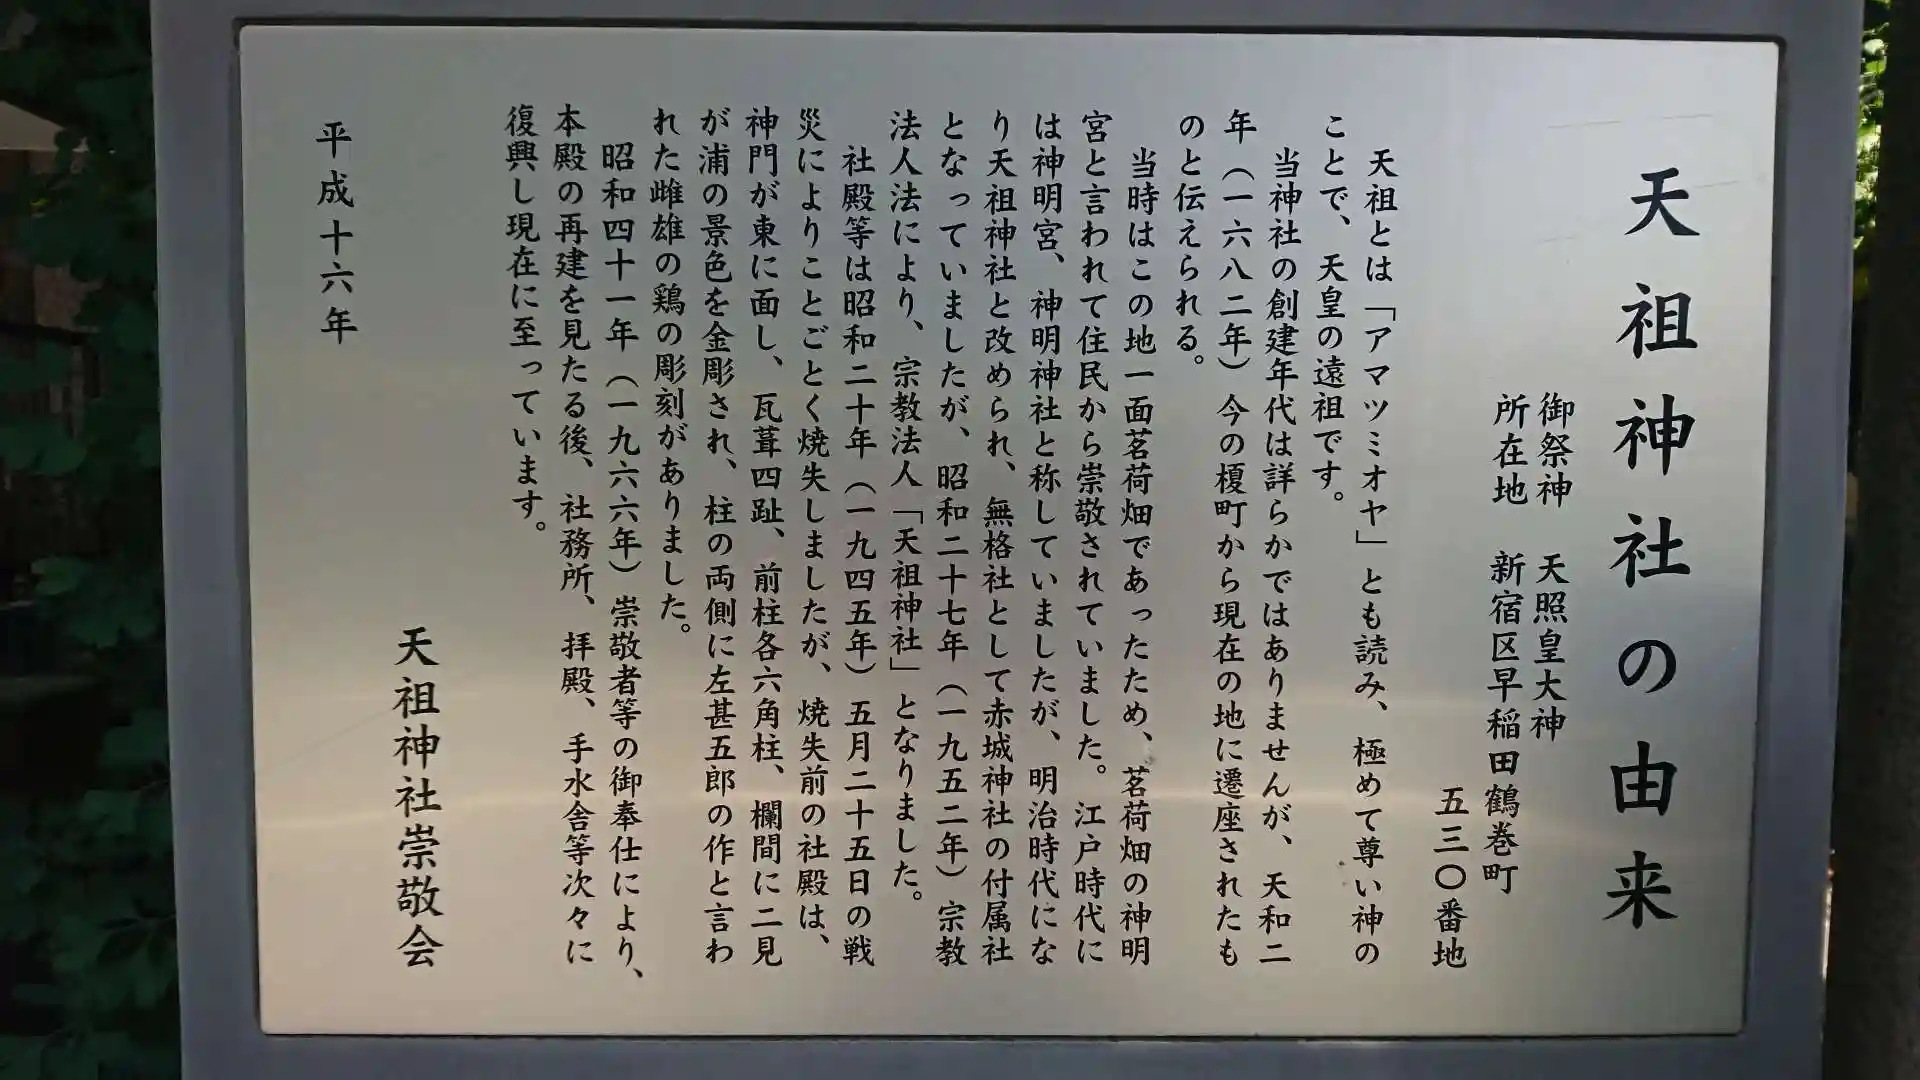 天祖神社の由来
御祭神　天照皇大神
所在地　新宿区早稲田鶴巻町
五三〇番地
天祖とは「アマツミオヤ」とも読み、極めて尊い神の
ことで、天皇の遠祖です。
当神社の創建年代は詳らかではありませんが、天和二
年（一六八二年）今の榎町から現在の地に遷座されたも
のと伝えられる。
当時はこの地一面茗荷畑であったため、茗荷畑の神明
宮と言われて住民から崇敬されていました。江戸時代に
は神明宮、神明神社と称していましたが、明治時代にな
り天祖神社と改められ、無格社として赤城神社の付属社
となっていましたが、昭和二十七年（一九五二年）宗教
法人法により、宗教法人「天祖神社」となりました。
社殿等は昭和二十年（一九四五年）五月二十五日の戦
災によりことごとく焼失しましたが、焼失前の社殿は、
神門が東に面し、瓦葺四趾、前柱各六角柱、欄間に二見
が浦の景色を金彫され、柱の両側に左甚五郎の作と言わ
れた雌雄の鶏の彫刻がありました。
昭和四十一年（一九六六年）崇敬者等の御奉仕により、
本殿の再建を見たる後、社務所、拝殿、手水舎等次々に
復興し現在に至っています。
天祖神社崇敬会
平成十六年